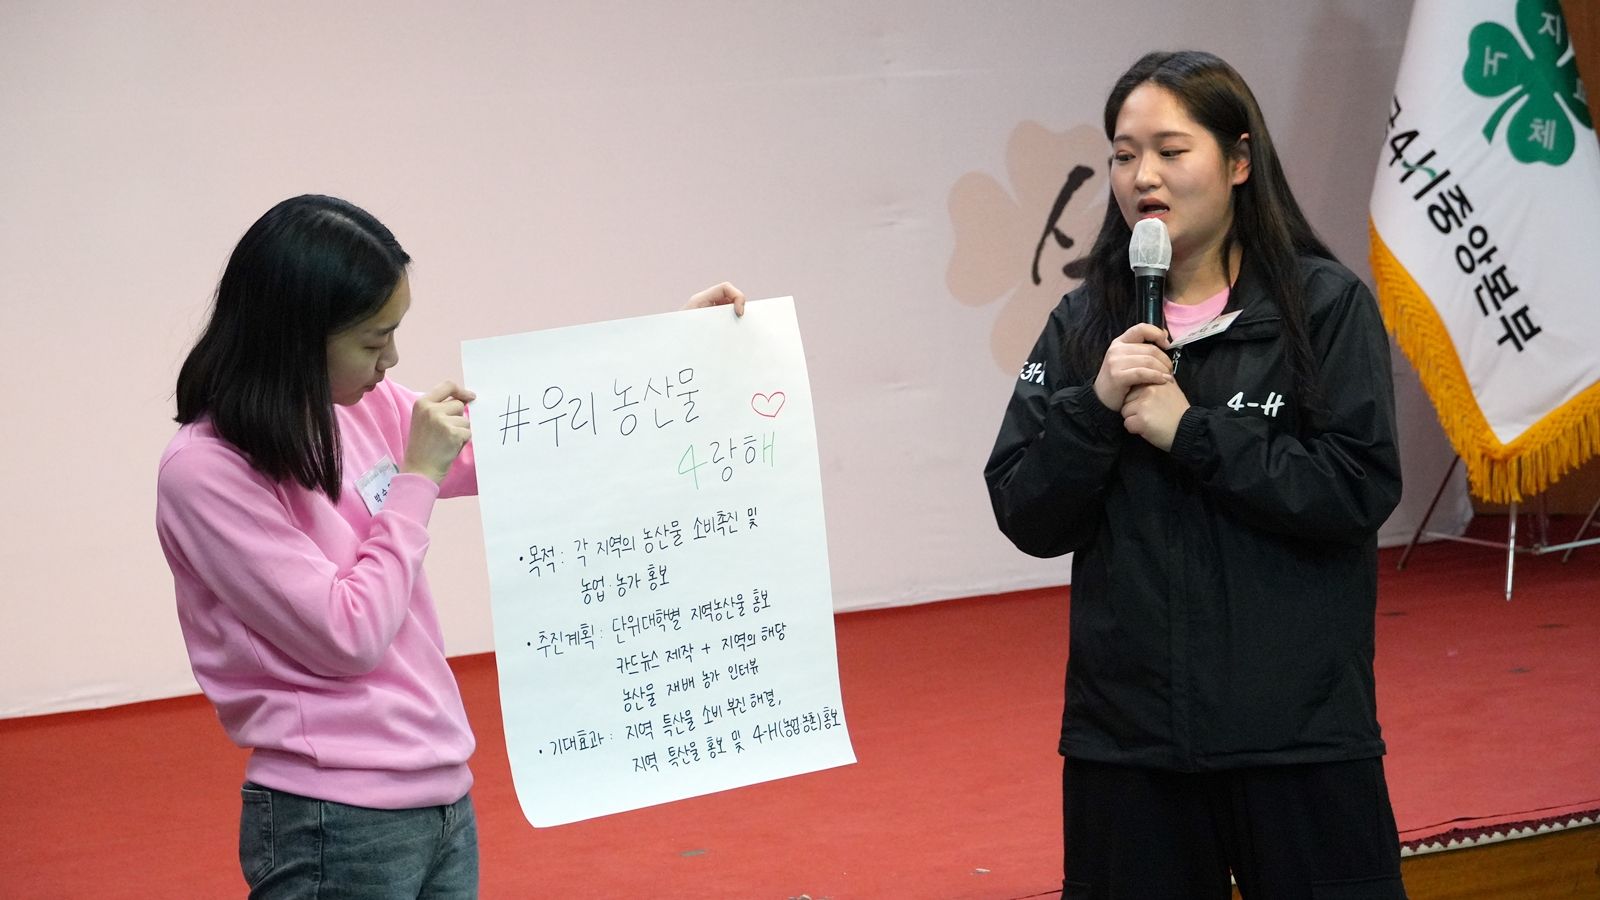 #우리 농산물
4랑해
• 목적 : 각 지역의 농산물 소비촉진 및
농업·농가 홍보
• 추진계획 : 단위대학별 지역농산물 홍보
카드뉴스 제작 + 지역의 해당
농산물 재배 농가 인터뷰
• 기대효과 : 지역 특산물 소비 부진 해결,
지역 특산물 홍보 및 4-H(농업농촌)홍보
4-H
박수
지
노
체
4-H중앙본부